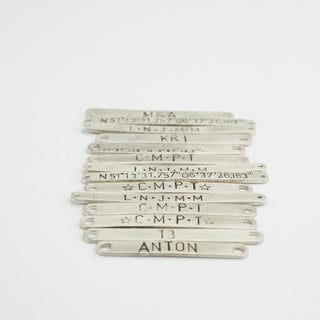 M&A
N51°13'31.757"06°37'26.163"
L·N·J·M·M
KRI
C·M·P·T
L·N·J·M·M
N51°13'31.757"06°37'26.163"
☆C·M·P·T☆
L·N·J·M·M
C·M·P·T
☆C·M·P·T☆
13
ANTON